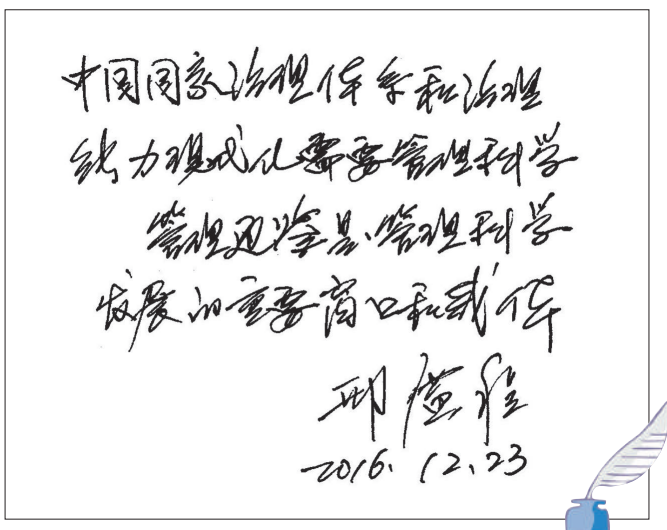 中国国家治理体系和治理
能力现代化需要管理科学
管理边际是管理科学
发展的重要窗口和载体
邢
2016.12.23